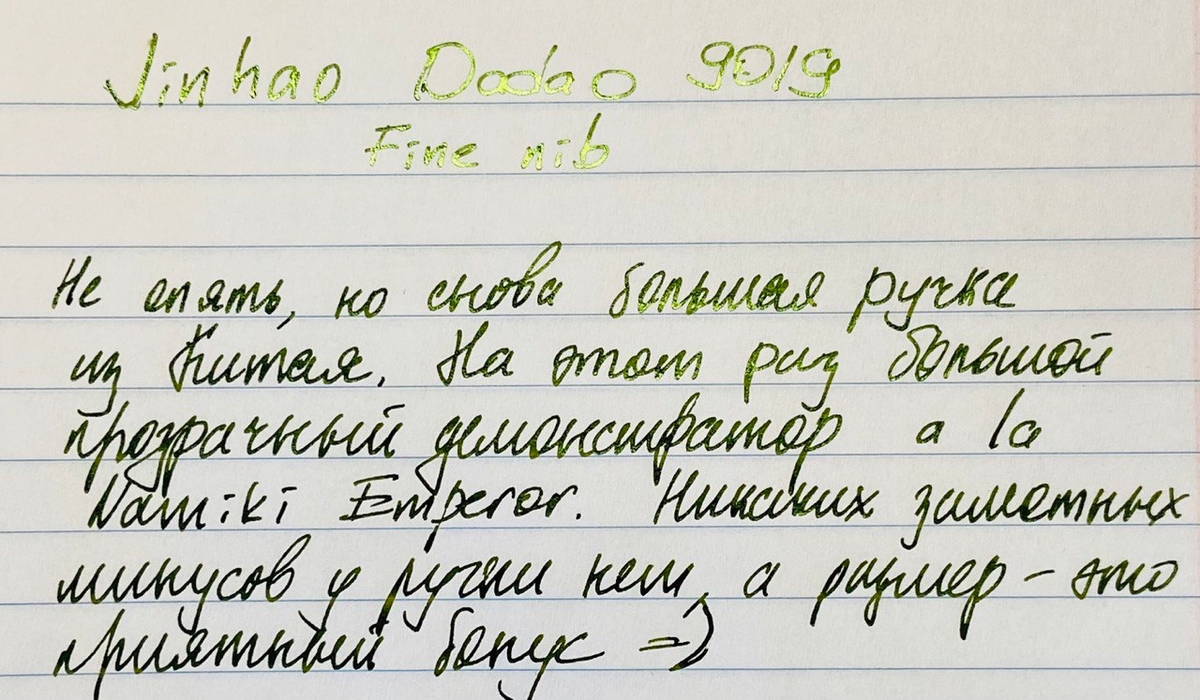 Jinhao Dadao 9019
Fine nib
Не опять, но снова большая ручка
из Китая. На этот раз большой
прозрачный демонстратор a la
Namiki Emperor. Никаких заметных
минусов у ручки нет, а размер - это
приятный бонус =)